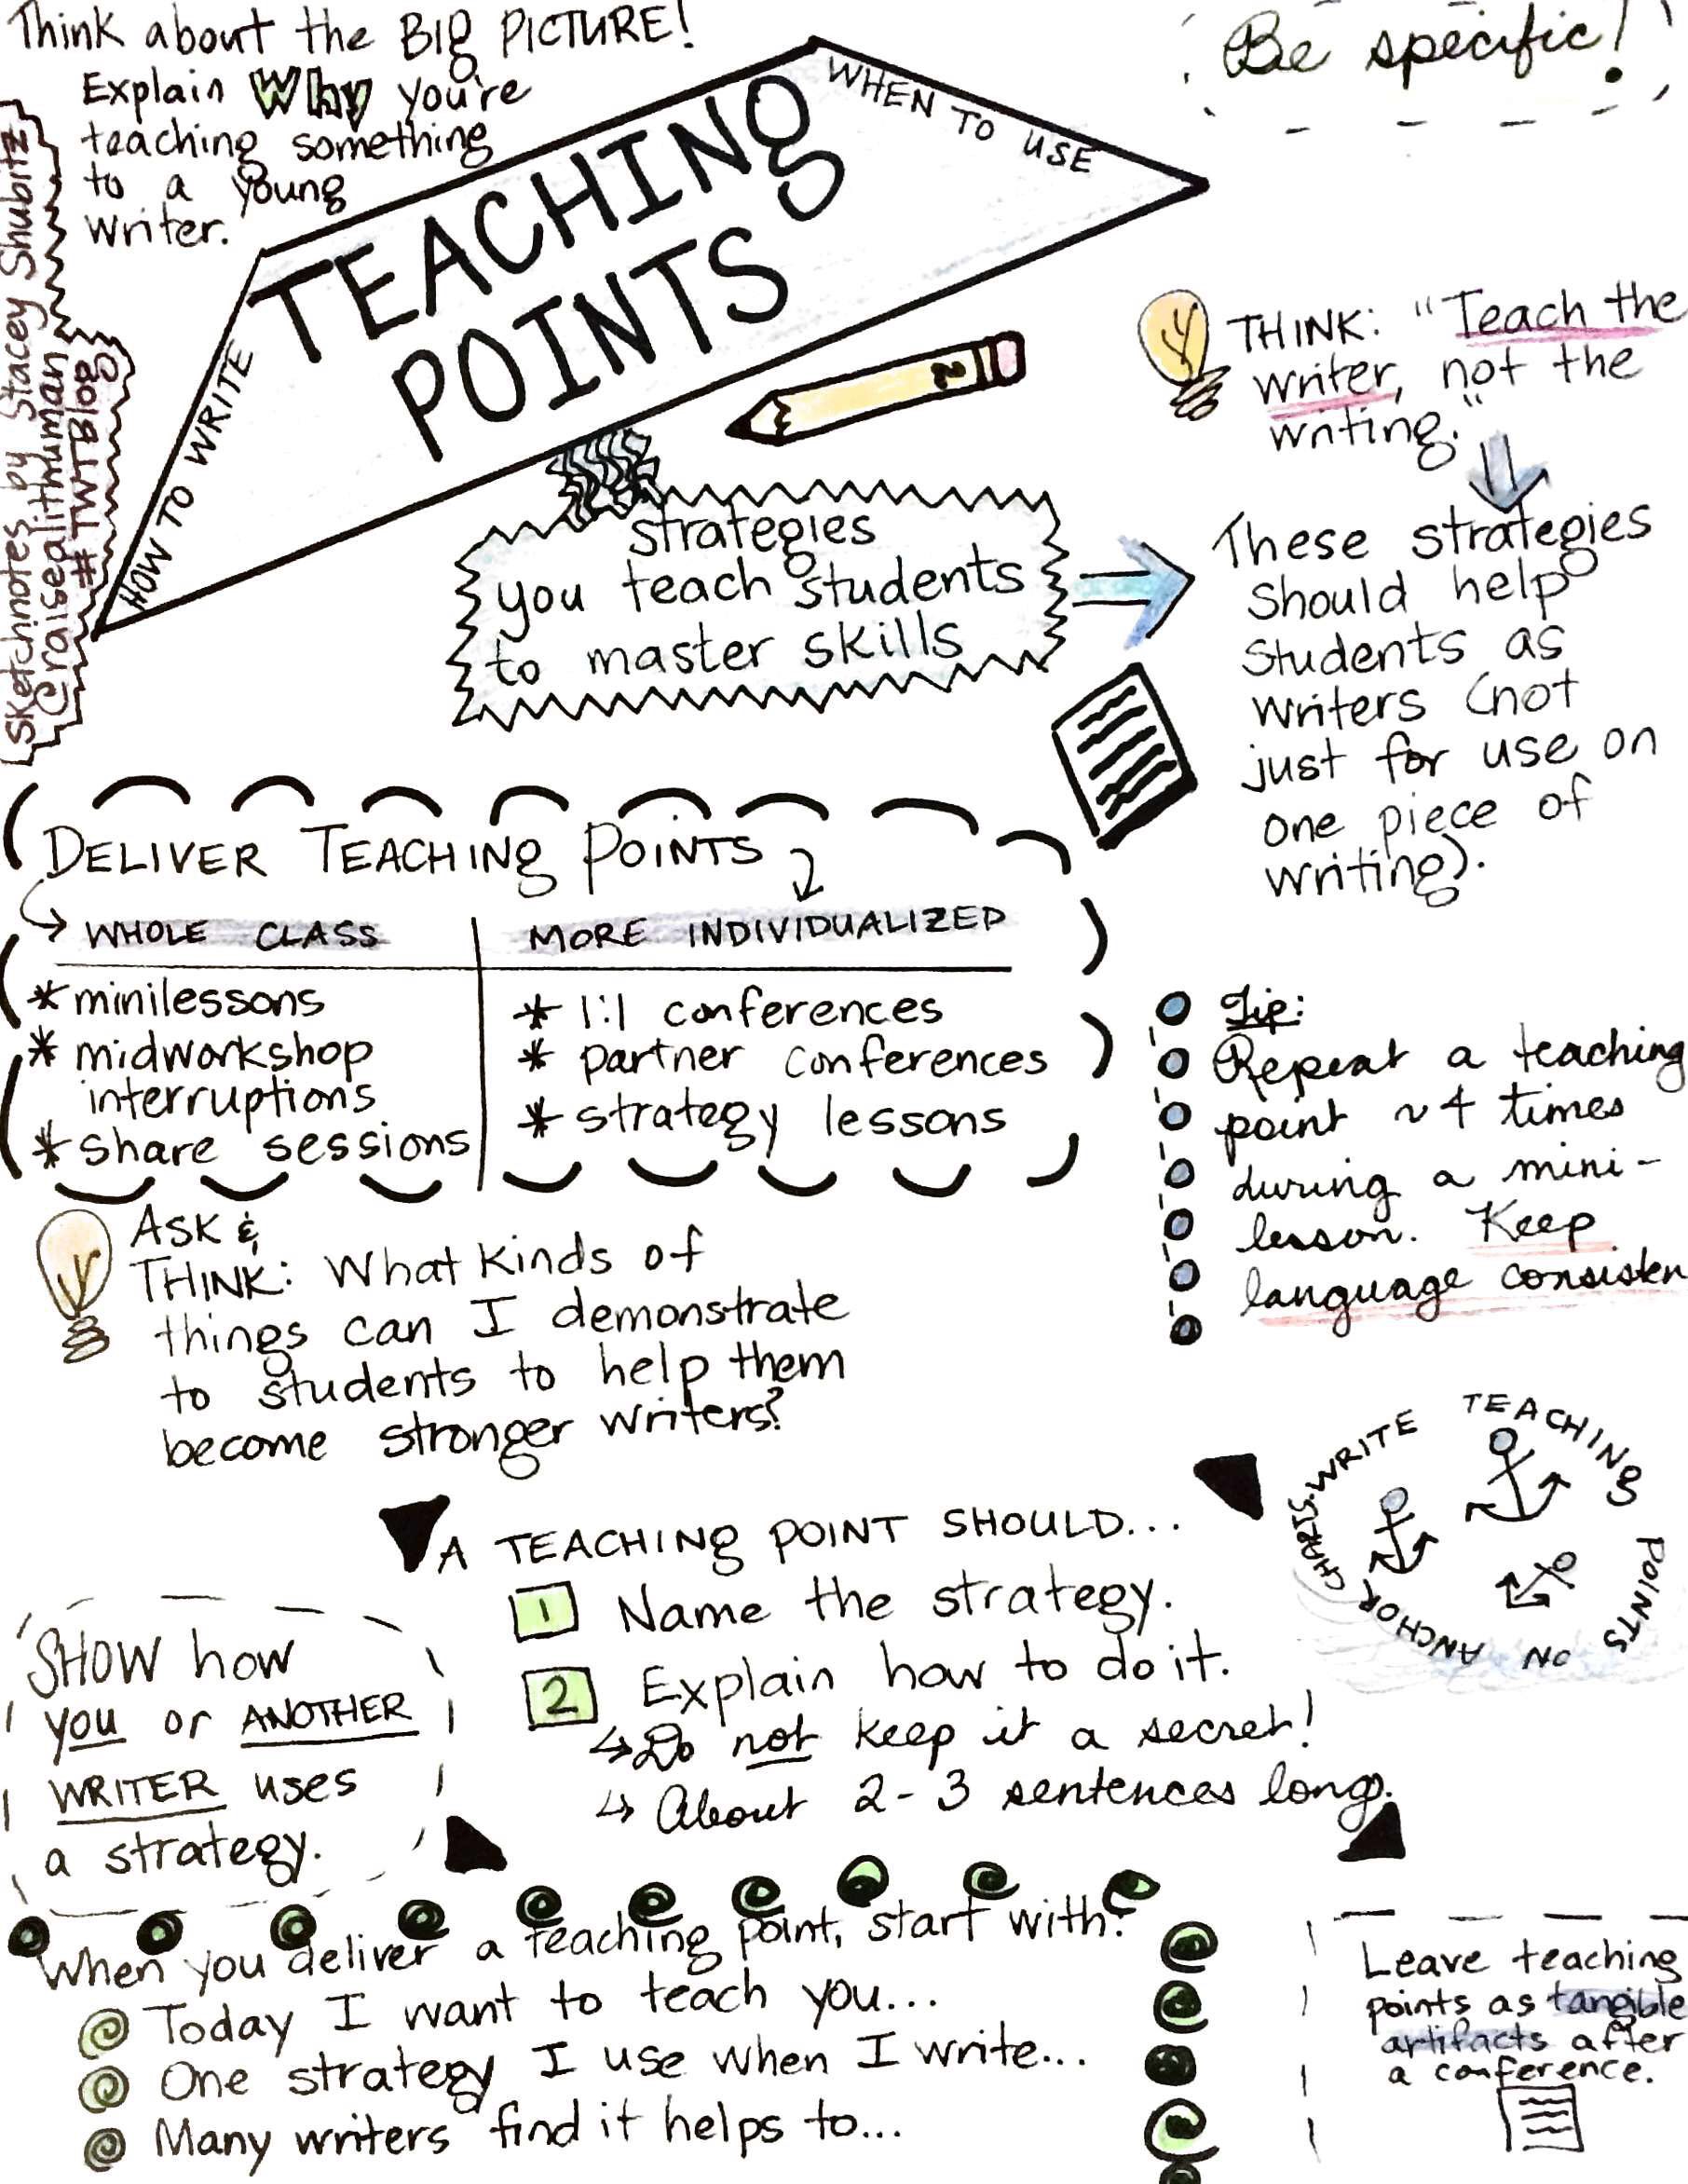 Think about the BIG PICTURE!
Explain Why you're
teaching something
to a young
writer.
Be specific!
Sketchnotes by Stacey Shubitz
@raisealithuman
#TWTBlog
TEACHING
POINTS
WHEN TO USE
HOW TO WRITE
2
THINK: "Teach the
writer, not the
writing."
strategies
you teach students
to master skills
These strategies
should help
students as
writers (not
just for use on
one piece of
writing).
DELIVER TEACHING POINTS
WHOLE CLASS
* minilessons
* midworkshop
interruptions
* share sessions
MORE INDIVIDUALIZED
* 1:1 conferences
* partner conferences
* strategy lessons
Tip:
Repeat a teaching
point ~4 times
during a mini-
lesson. Keep
language consisten
ASK &
THINK: What kinds of
things can I demonstrate
to students to help them
become stronger writers?
WRITE TEACHING POINTS ON ANCHOR CHARTS.
A TEACHING POINT SHOULD...
1 Name the strategy.
2 Explain how to do it.
↳ Do not keep it a secret!
↳ About 2-3 sentences long.
SHOW how
you or ANOTHER
WRITER uses
a strategy.
When you deliver a teaching point, start with:
Today I want to teach you...
One strategy I use when I write...
Many writers find it helps to...
Leave teaching
points as tangible
artifacts after
a conference.